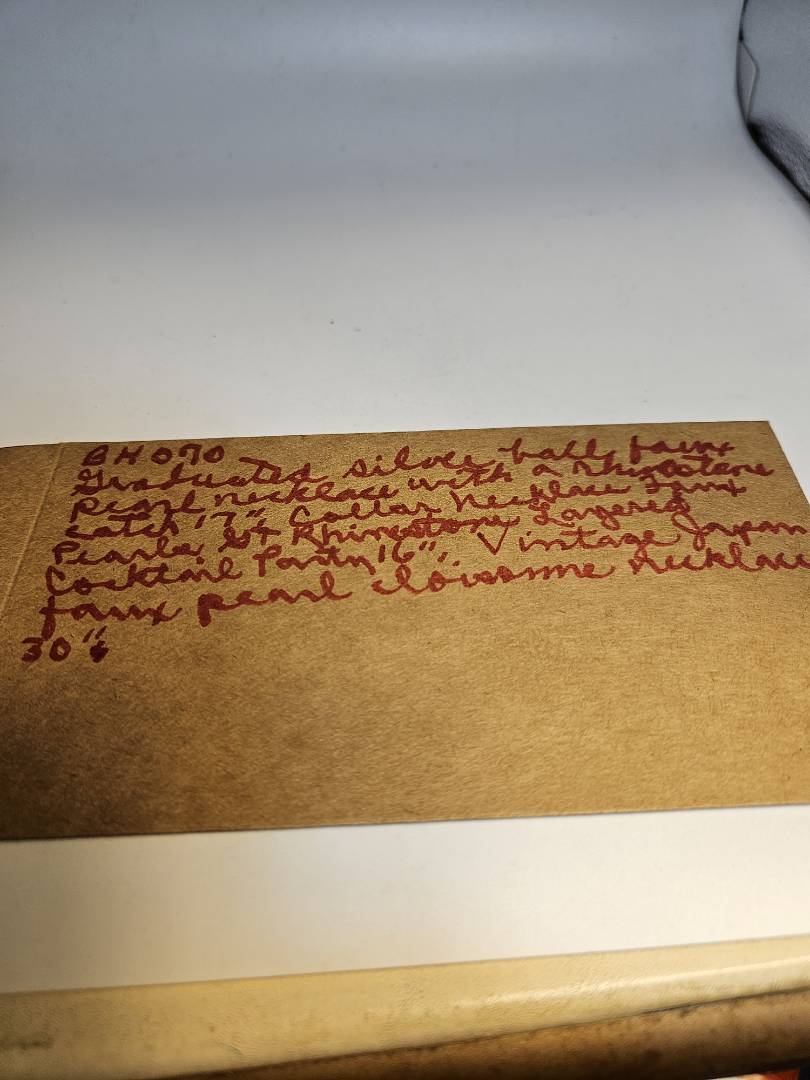 BH070
Graduated silver ball, faux
pearl necklace with a rhinestone
catch 17" Collar Necklace Faux
Pearls & Rhinestone Layered
Cocktail Party 16", Vintage Japan
faux pearl cloisonne necklace
30"